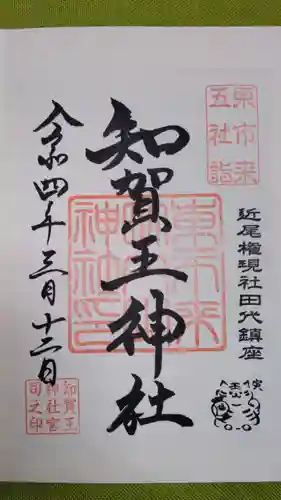 東市来
五社詣
近尾権現社田代鎮座
知賀王神社
令和四年三月十二日
知賀王
神社宮
司之印